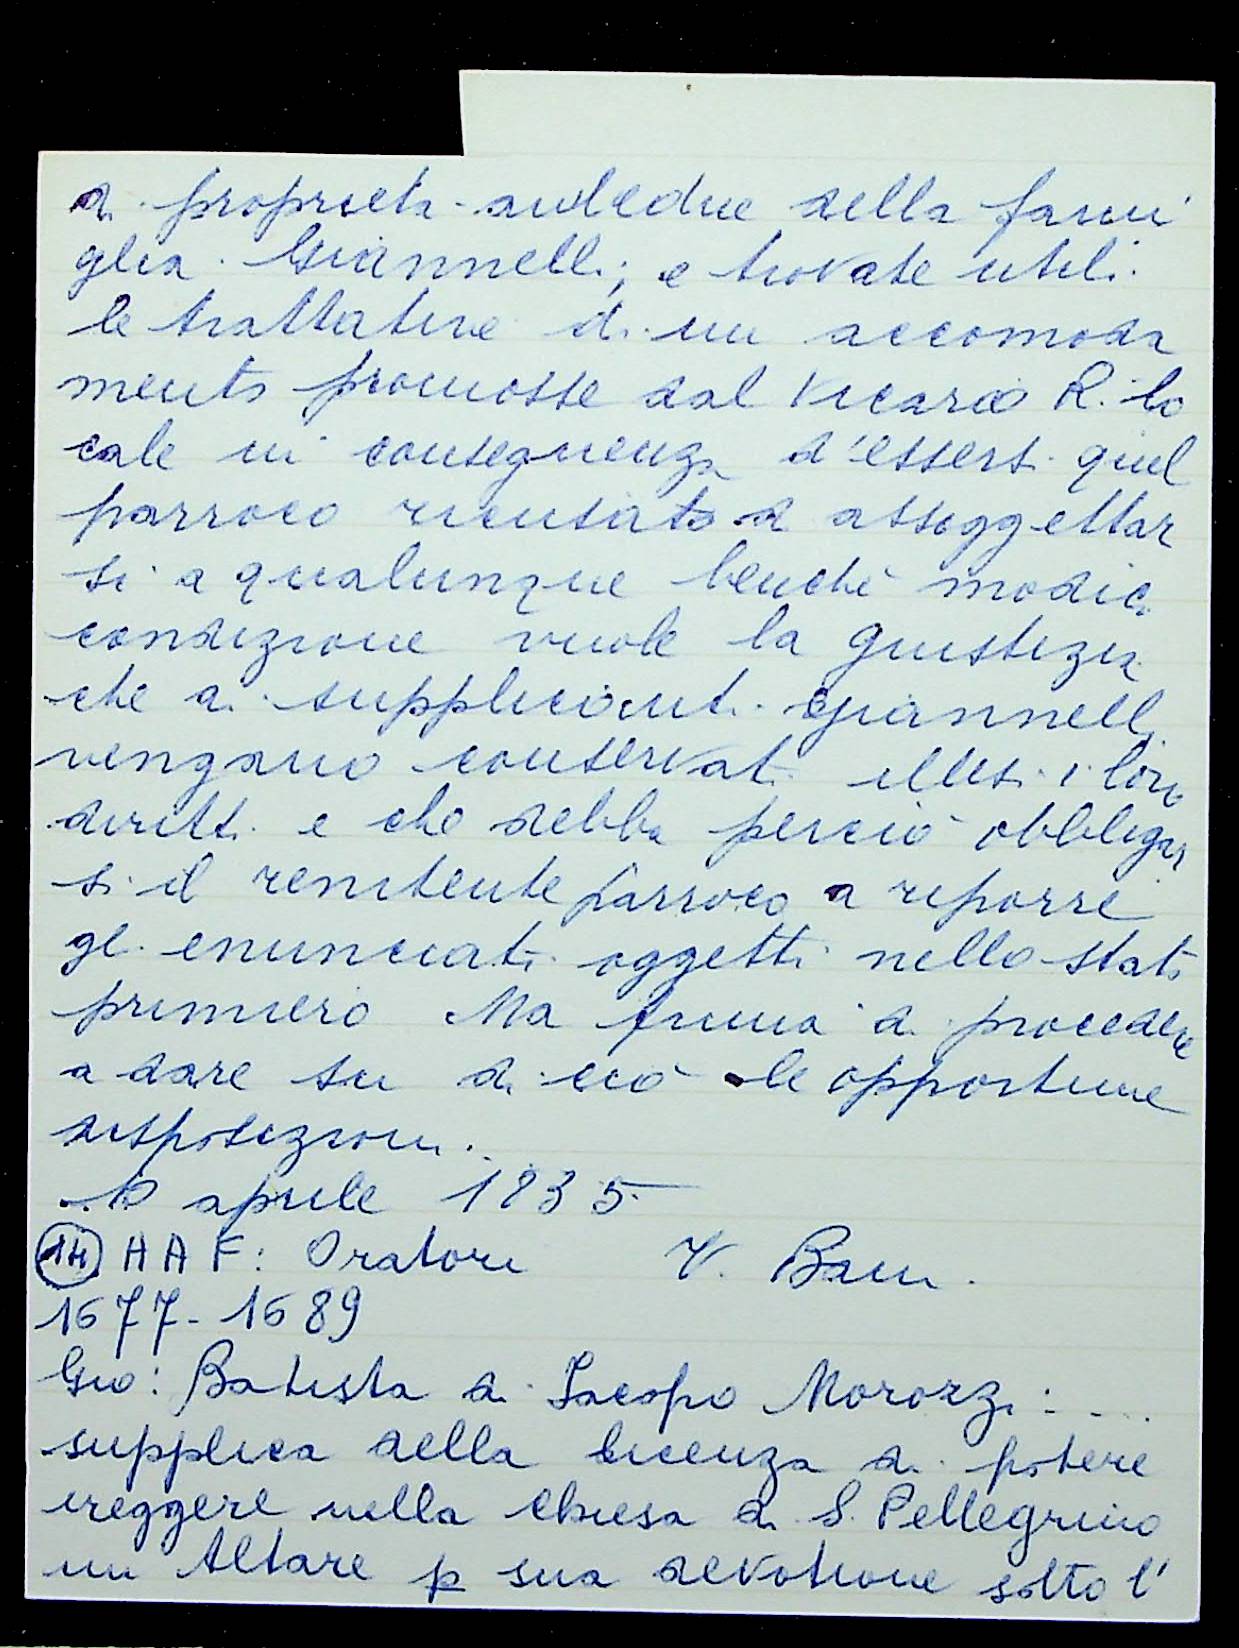 di proprietà ambedue della fami
glia Giannelli; e trovate utili
le trattative di un accomoda
mento promosse dal Vicario R. lo
cale in conseguenza d'essersi quel
parroco ricusato a assoggettar
si a qualunque benché modica
condizione vuole la giustizia
che ai supplicanti Giannelli
vengano conservati illesi i loro
diritti e che debba perciò obbligar
si il renitente parroco a riporre
gl enunciati oggetti nello stato
primiero Ma prima di procedere
a dare su di ciò le opportune
disposizioni.
10 aprile 1835
14 A A F: Oratori V. Bam.
1677-1689
Gio: Batista di Jacopo Morozzi: ....
supplica della licenza di potere
ereggere nella chiesa di S. Pellegrino
un Altare p sua devotione sotto l'